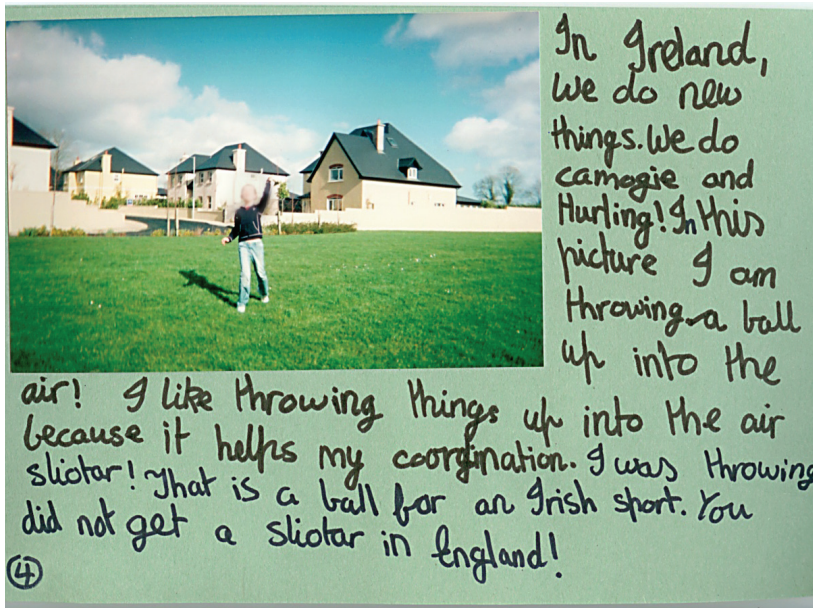 In Ireland,
we do new
things. We do
camogie and
Hurling! In this
picture I am
throwing a ball
up into the
air! I like throwing things up into the air
because it helps my coordination. I was throwing
sliotar! That is a ball for an Irish sport. You
did not get a sliotar in England!
4